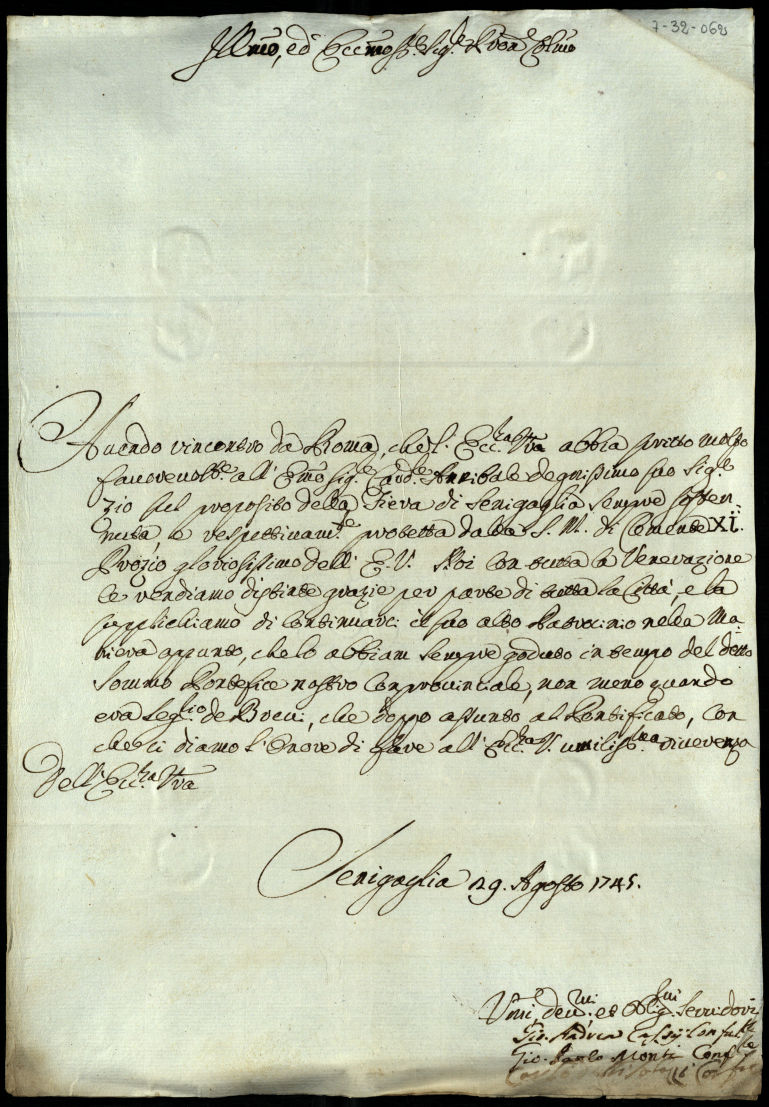 7-32-062
Illmo, ed Eccmo Sig.r Sig.r e Pron Colmo
Auendo rincontro da Roma, che l'Ecc.za Vra abbia scritto molto
fauorevolte all'Emo Sig.e Card.e Annibale degnissimo suo Sig.e
Zio sul proposito della Fiera di Senigaglia sempre soste-
nuta, e respettivam.te protetta dalla S. M. di Clemente XI.
Prozio gloriosissimo dell'E. V. Noi con tutta la Venerazione
le rendiamo distinte grazie per parte di tutta la Città, e la
supplichiamo di continuarci il suo alto Patrocinio nella Ma-
niera appunto, che lo abbiam sempre goduto in tempo del detto
Sommo Pontefice nostro Conprovinciale, non meno quando
era Seg.rio de Brevi, che doppo assunto al Pontificato, con
che ci diamo l'Onore di fare all'Ecc.za V. umiliss.ma riverenza
Dell'Ecc.za Vra
Senigaglia 29. Agosto 1745.
Vmi, deu.mi, et Oblig.mi Seruidori
Gio. Andrea Consult.e
Gio. Paolo Monti Conf.re